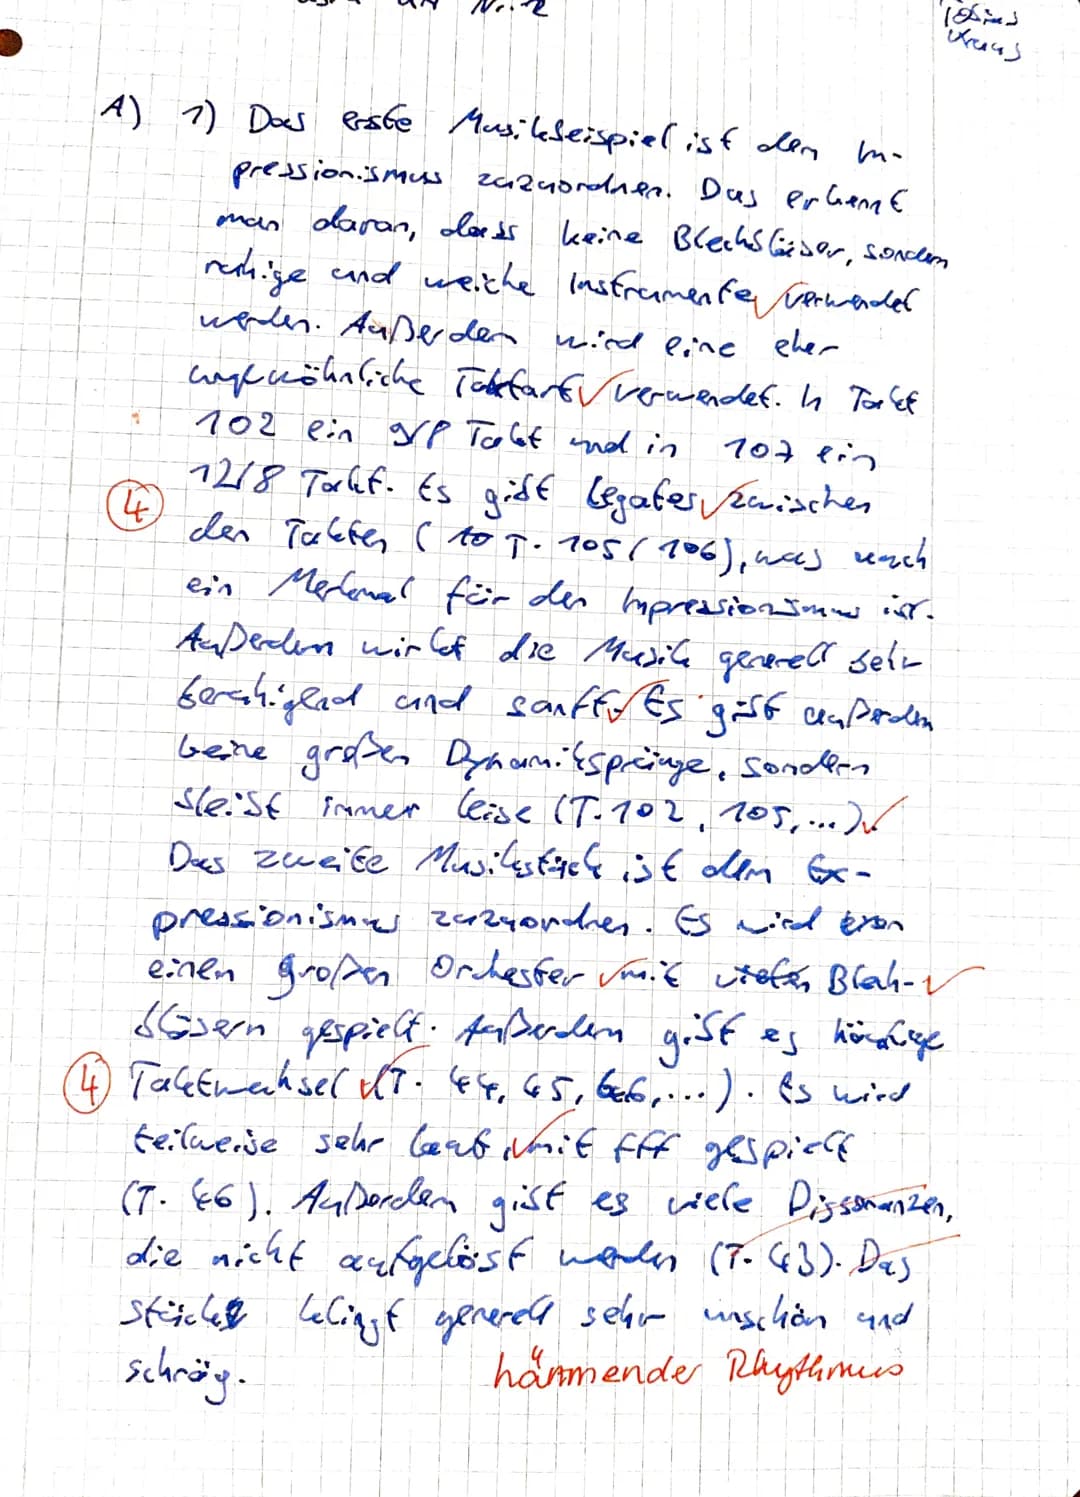 Nr. 2
Tobias
Kraus
A) 1) Das erste Musikbeispiel ist dem Im-
pressionismus zuzuordnen. Das erkennt
man daran, dass keine Blechbläser, sondern
ruhige und weiche Instrumente verwendet
werden. Außerdem wird eine eher
ungewöhnliche Taktart verwendet. In Takt
102 ein 9/8 Takt und in 107 ein
12/8 Takt. Es gibt Legates zwischen
4
den Takten ( T. 105/106), was auch
ein Merkmal für den Impressionismus ist.
Außerdem wirkt die Musik generell sehr
beruhigend und sanft. Es gibt außerdem
keine großen Dynamiksprünge, sondern
bleibt immer leise (T. 102, 105, ...)
Das zweite Musikstück ist dem Ex-
pressionismus zuzuordnen. Es wird von
einem großen Orchester mit vielen Blech-
bläsern gespielt. Außerdem gibt es häufige
4 Taktwechsel (T. 44, 45, 46, ...). Es wird
teilweise sehr laut, mit fff gespielt
(T. 46). Außerdem gibt es viele Dissonanzen,
die nicht aufgelöst werden (T. 43). Das
Stück klingt generell sehr unschön und
schräg.
hämmender Rhythmus